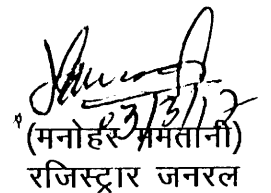 03/3/17
(मनोहर ममतानी)
रजिस्ट्रार जनरल